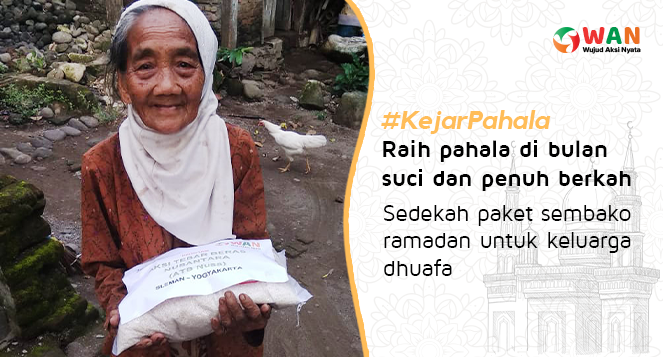 WAN
Wujud Aksi Nyata
#KejarPahala
Raih pahala di bulan
suci dan penuh berkah
Sedekah paket sembako
ramadan untuk keluarga
dhuafa
WAN
AKSI TEBAR BERAS
NUSANTARA
(ATB NUSA)
SLEMAN - YOGYAKARTA